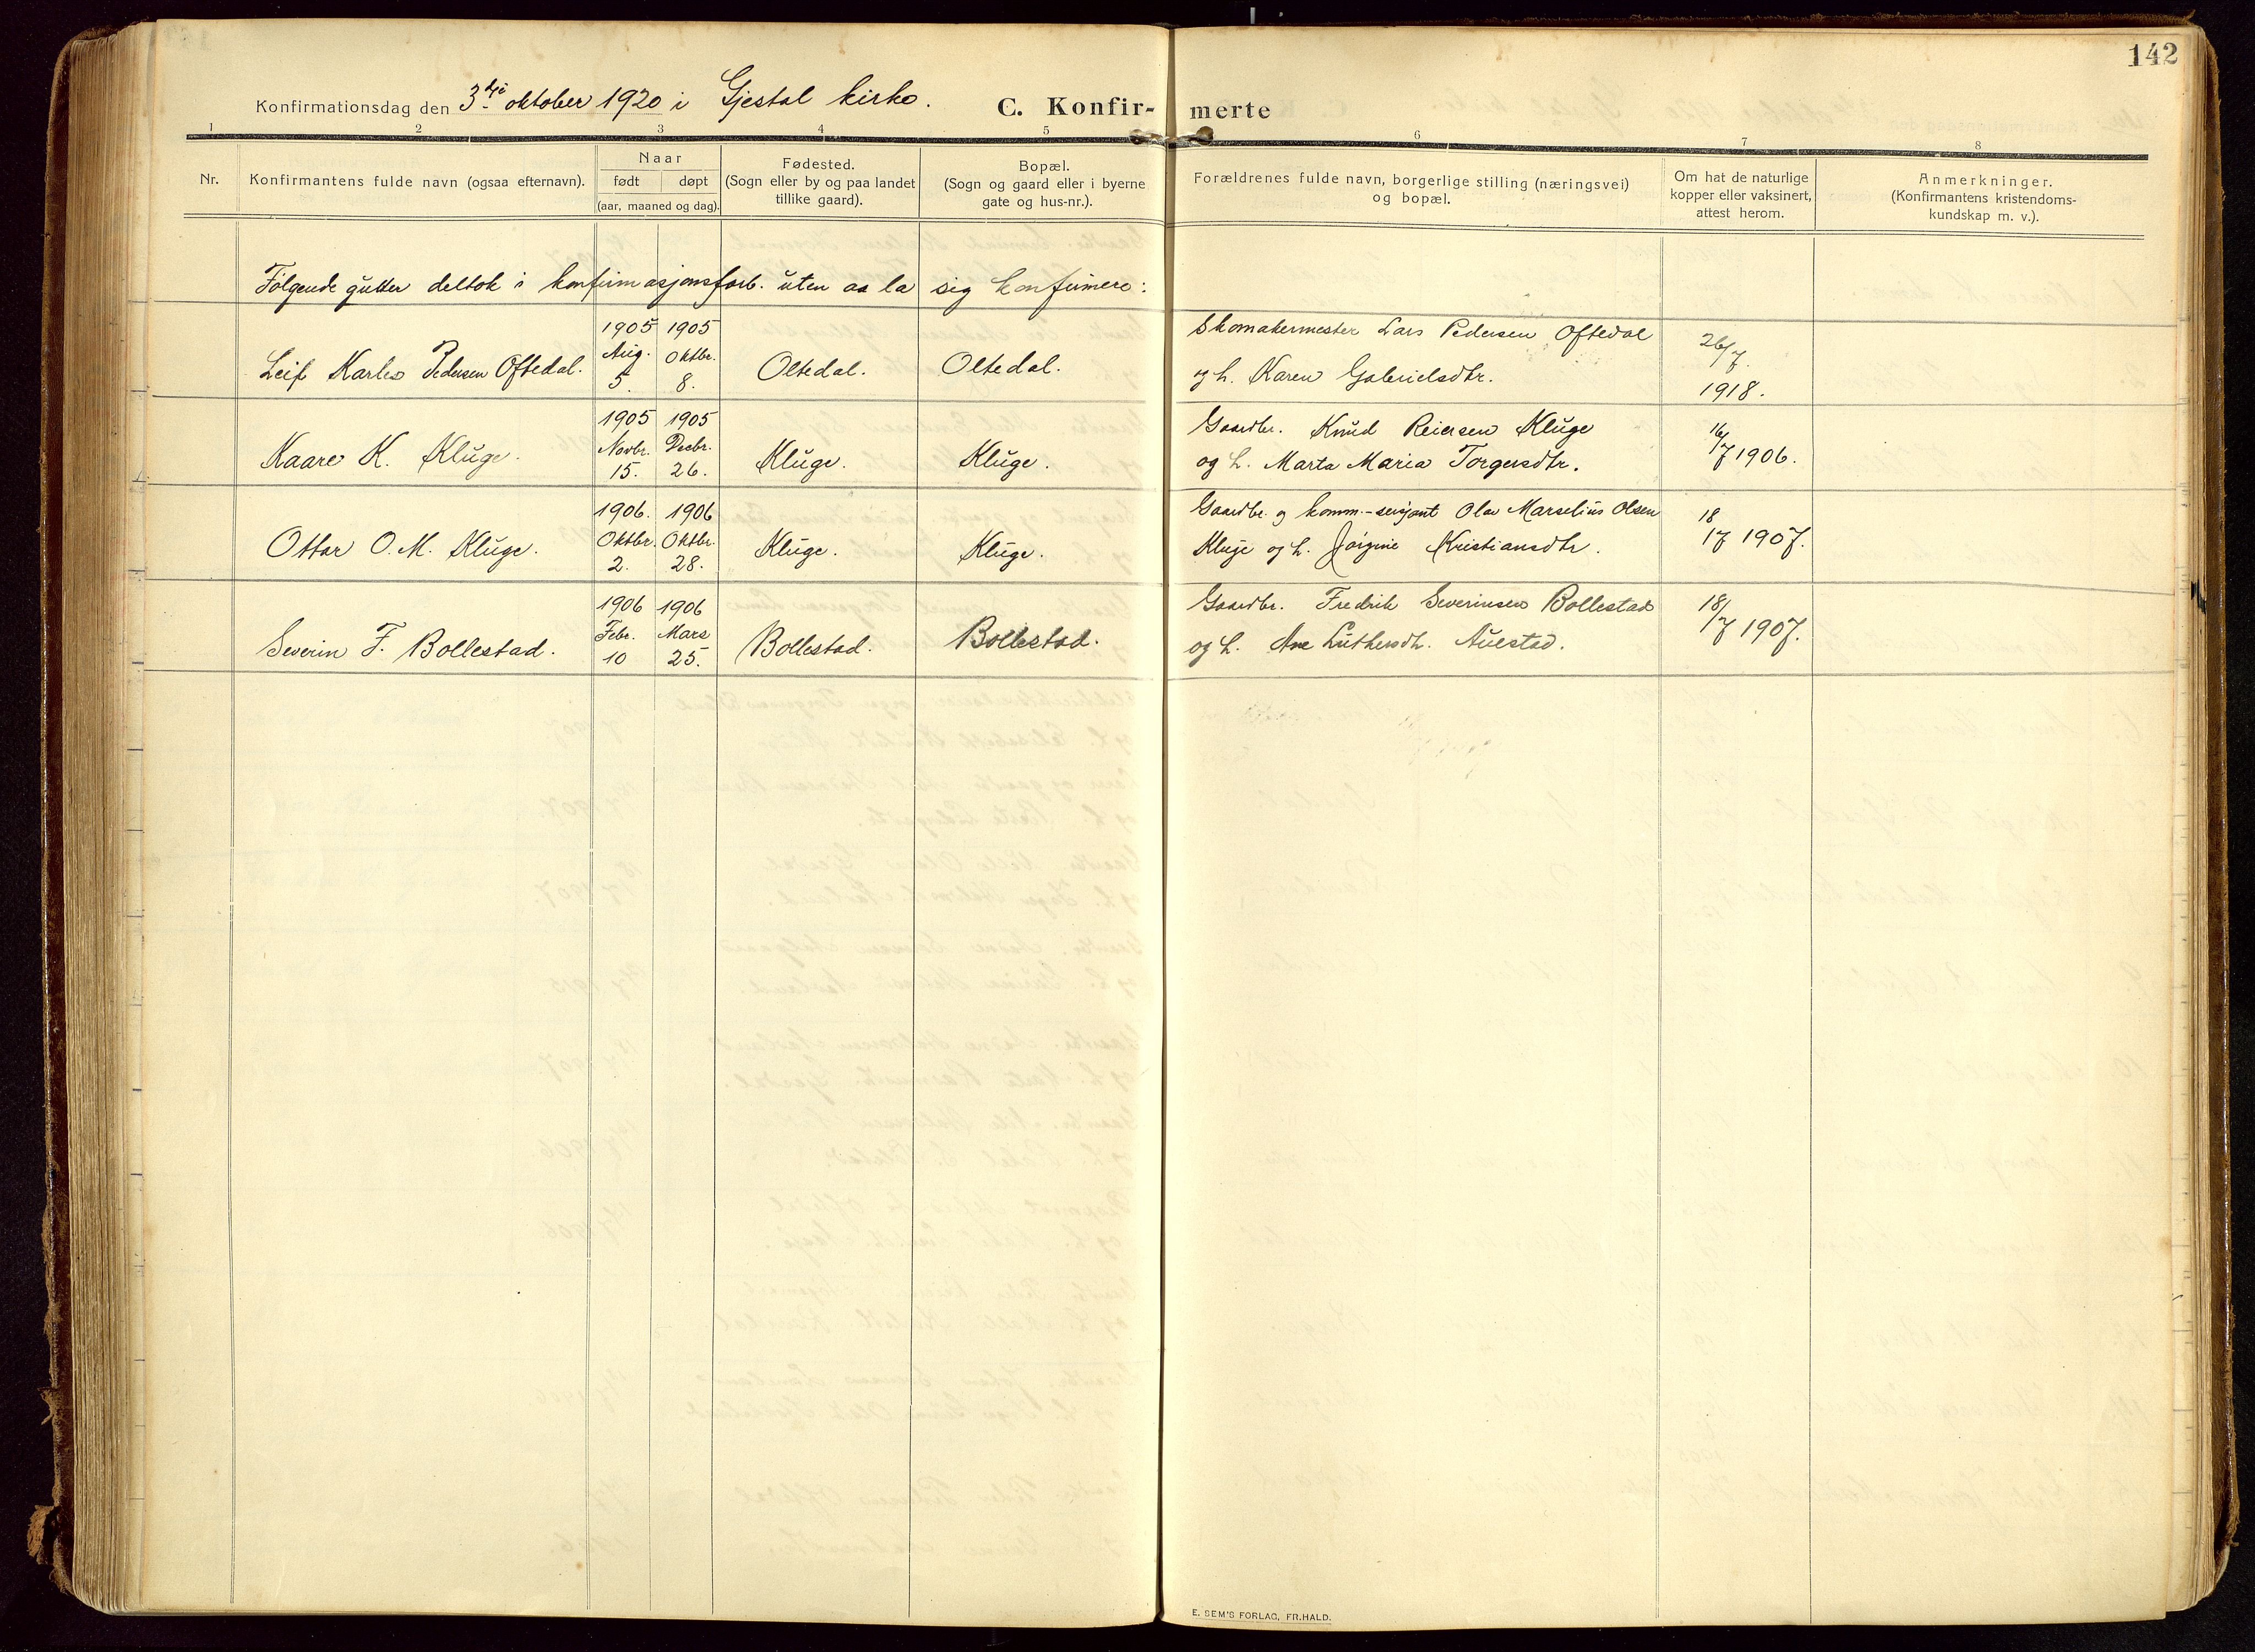 142
Konfirmationsdag den 3die oktober 1920 i Gjestal kirke. C. Konfir- merte
1 2 3 4 5 6 7 8
Nr.
Konfirmantens fulde navn (ogsaa efternavn).
Naar
født døpt
(aar, maaned og dag).
Fødested.
(Sogn eller by og paa landet
tillike gaard).
Bopæl.
(Sogn og gaard eller i byerne
gate og hus-nr.).
Forældrenes fulde navn, borgerlige stilling (næringsvei)
og bopæl.
Om hat de naturlige
kopper eller vaksinert,
attest herom.
Anmerkninger.
(Konfirmantens kristendoms-
kundskap m. v.).
Følgende gutter deltok i konfirmasjonsforb. uten aa la sig konfirmere:
1905 1905
Aug. Oktbr.
5. 8.
Leif Karles Pedersen Oftedal.
Oltedal. Oltedal.
Skomakermester Lars Pedersen Oftedal
og h. Karen Gabrielsdtr.
26/7.
1918.
1905 1905
Novbr. Desbr.
15. 26.
Kaare K. Kluge.
Kluge. Kluge.
Gaardbr. Knud Reiersen Kluge
og h. Marta Maria Torgersdtr.
16/7 1906.
1906. 1906
Oktbr. Oktbr.
2. 28.
Ottar O. M. Kluge.
Kluge. Kluge.
Gaardbr. og komm.-sersjant Olav Marselius Olsen
Kluge og h. Jørgine Kristiansdtr.
18
17 1907.
1906 1906
Febr. Mars
10 25.
Severin F. Bollestad.
Bollestad. Bollestad.
Gaardbr. Fredrik Severinsen Bollestad
og h. Ane Luthersdtr. Auestad.
18/7 1907.
E. SEM'S FORLAG, FR.HALD.